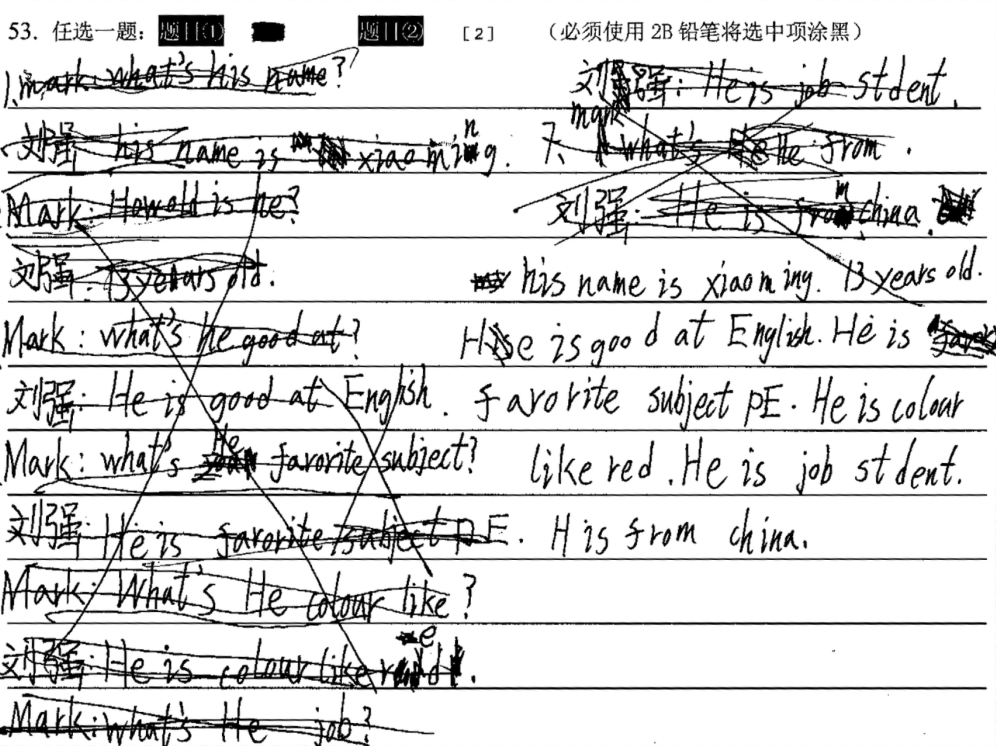 53. 任选一题：题目① 题目② [2] （必须使用 2B 铅笔将选中项涂黑）
1. mark: what's his name?
刘强: his name is xiaoming.
Mark: How old is he?
刘强: 13 years old.
Mark: what's he good at?
刘强: He is good at English.
Mark: what's He favorite subject?
刘强: He is favorite subject PE.
Mark: What's He colour like?
刘强: He is colour like red.
Mark: what's He job?
刘强: He is job stdent.
7. mark what's He from.
刘强: He is from china.
his name is xiaoming. 13 years old.
He is good at English. He is
favorite subject PE. He is colour
like red. He is job stdent.
H is from china.